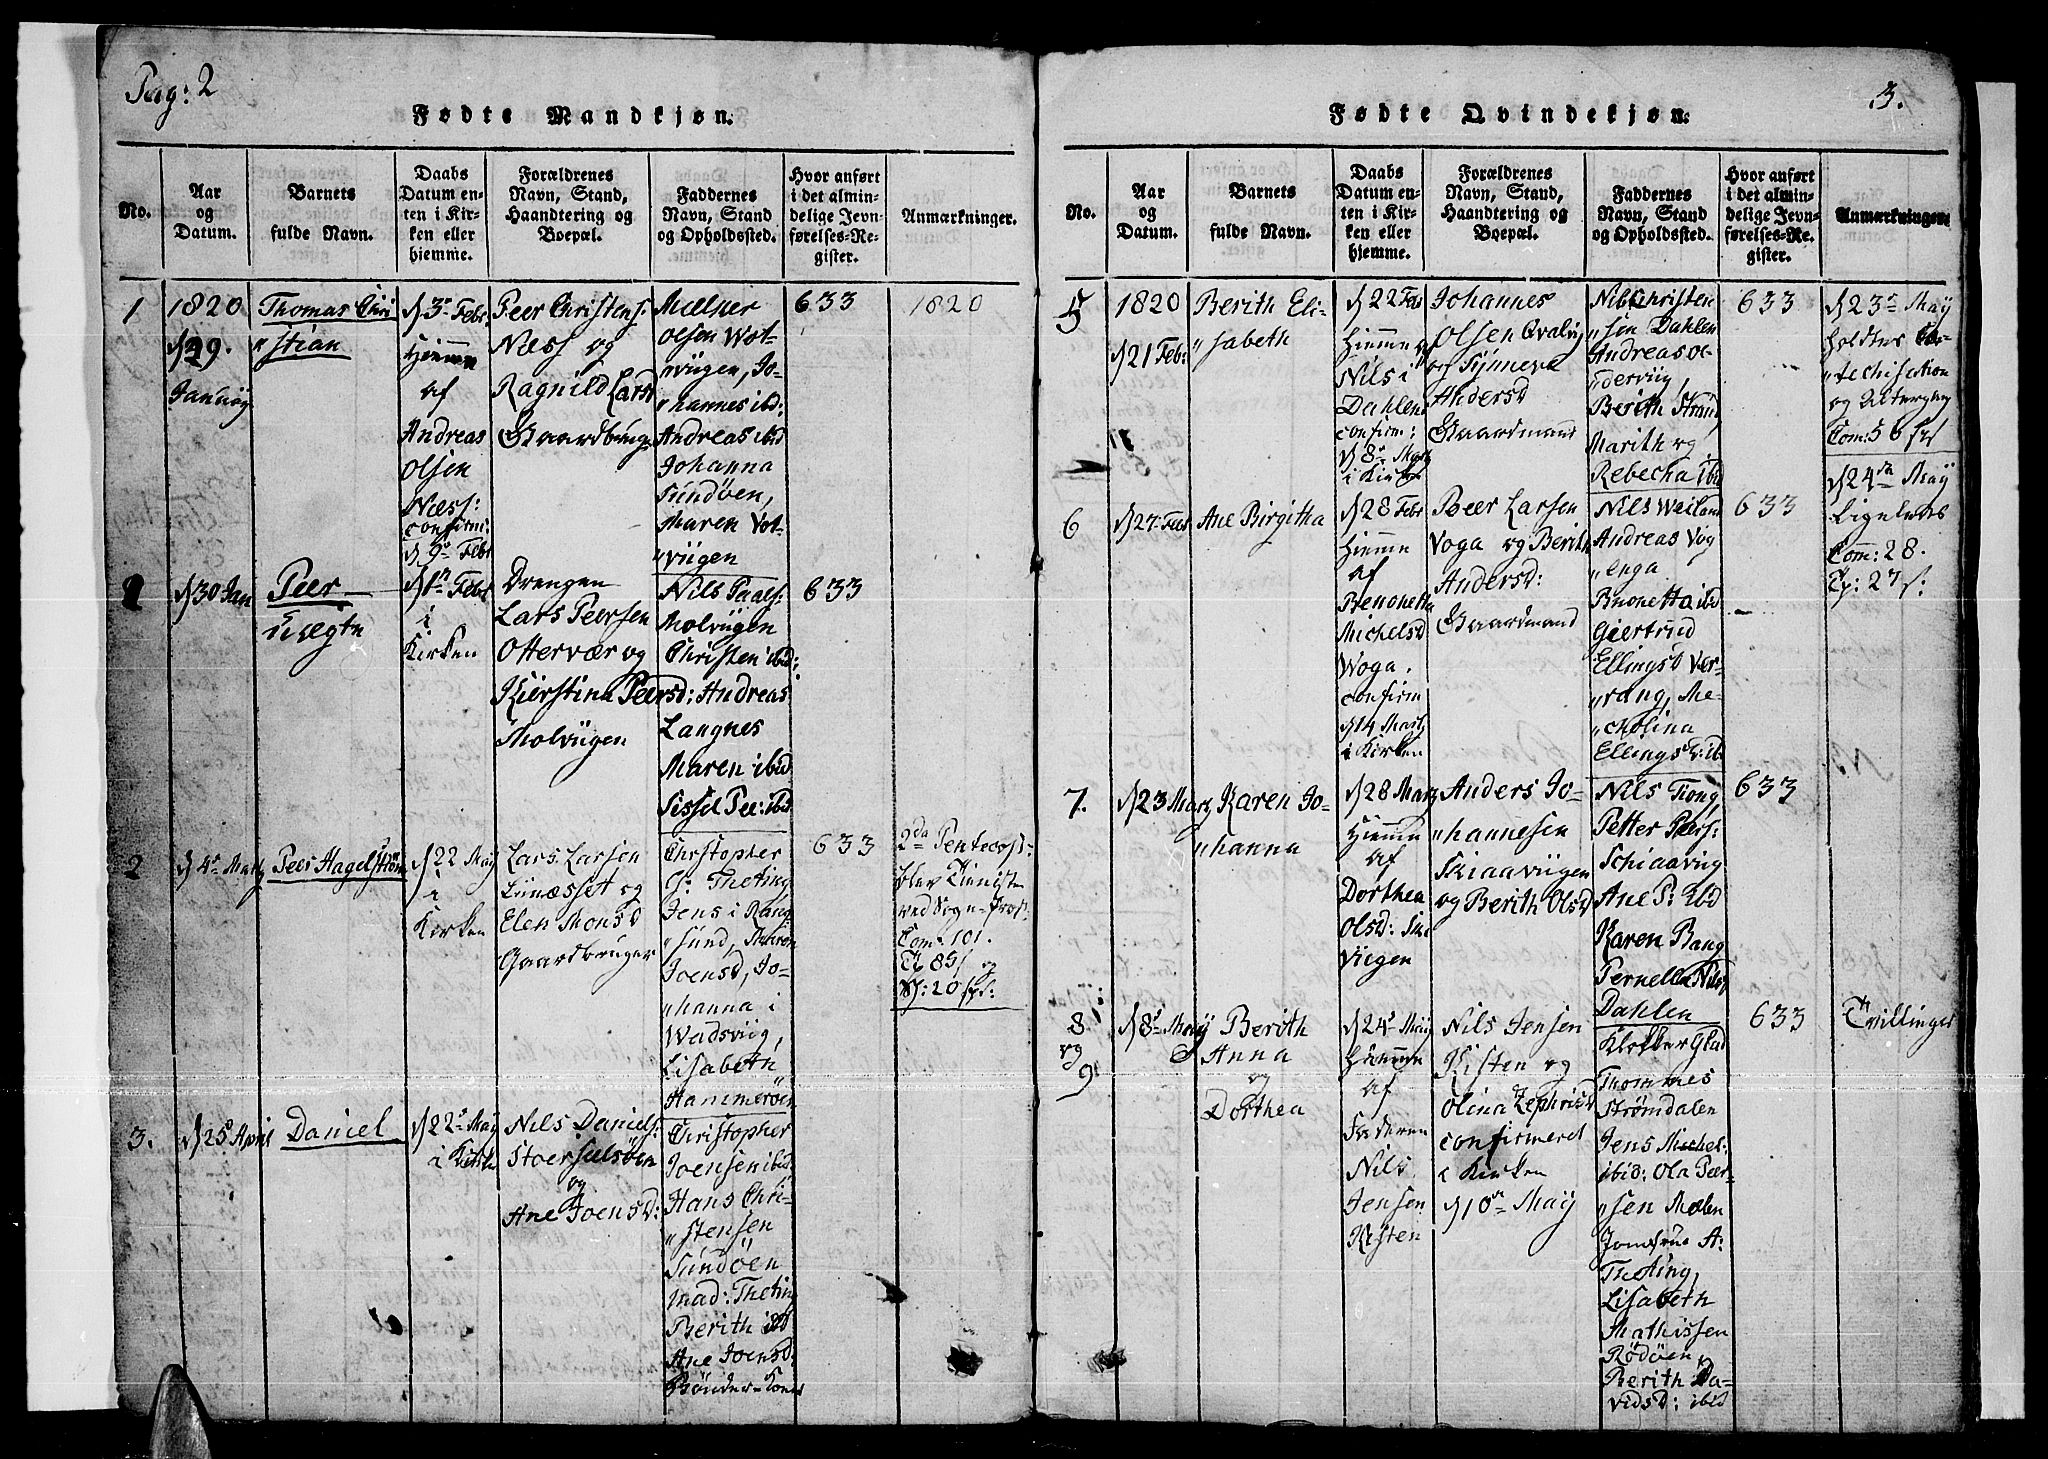 Pag: 2
Fødte Mandkjøn.
No.
Aar
og
Datum.
Barnets
fulde Navn.
Daabs
Datum en-
ten i Kir-
ken eller
hjemme.
Forældrenes
Navn, Stand,
Haandtering og
Boepæl.
Faddernes
Navn, Stand
og Opholdssted.
Hvor anført
i det almin-
delige Jevn-
førelses-Re-
gister.
Anmærkninger.
1
1820
d 29.
Januӱ
Thomas Chri
"stian
d 3e Febr:
Hiemme
af
Andreas
Olsen
Næss:
confirm:
d 9e Febr
Peer Christens:
Næss og
Ragnild Larsd
Gaardbruge
Olsen Wot-
wiigen, Jo-
"hannes ibd:
Andreas ibd
Johanna
Sundøen,
Maren Vot-
"viigen
633
1820
d 30 Jan
Peer
Uægte
d 1n Febr
i
Kirken
Drengen
Lars Peersen
Ottervær og
Kierstina Peersd:
Molviigen
Nils Paals:
Molviigen
Christen ibid:
Andreas
Langnes
Maren ibid
Sissel Pee: ibd
633
2
d 4e Martz
Peer Hagelstrøm
d 22 Maӱ
i
Kirken
Lars Larsen
Lunæsset og
Elen Monsd
Gaardbruger
Christopher
Theting
Jens i Rang
"sund, Maren
Joensd, Jo-
"hanna i
Wadsviig,
Lisabeth
Hammerøen
633
2da Pentecost:
blev Tienisten
ved Sogn-Præst:
Com: 101.
3.
d 25e April
Daniel
d 22e Maӱ
i Kirken
Nils Daniels:
Stoerselsøen
og
Ane Joensd:
Christopher
Joensen ibid
Hans Chri-
"stensen
Sundøen
Mad: Theting
Berith ibd
Ane Joensd:
Bønder-Koner
3.
Fødte Qvindekjøn:
No.
Aar
og
Datum.
Barnets
fulde Navn.
Daabs
Datum en-
ten i Kir-
ken eller
hjemme.
Forældrenes
Navn, Stand,
Haandtering og
Boepæl.
Faddernes
Navn, Stand
og Opholdssted.
Hvor anført
i det almin-
delige Jevn-
førelses-Re-
gister.
Anmærkninger.
5
1820
d 21 Febr:
Berith Eli-
"sabeth
d 22 Feb
Hiemme af
Nils i
Dahlen
confirm:
d 8e Martz
i Kirke
Johannes
Olsen Qvalvig
og Synneva
Andersd
Gaardmand
Nils Christen
"sen Dahlen
Andreas O-
"derviig,
Berith Strand
Marith og
Rebecha ibd
633
d 23e Maӱ
holdtes Ca-
"techisation
og Altergang
Com: 56 st
6
d 27 Feb
Ane Birgitha
d 28 Febr
Hiemme
af
Benonetta
Michelsd
Woga.
confirm
d 14 Martz
i Kirken
Peer Larsen
Voga og Berith
Andersd:
Gaardmand
Nils Weiland
Andreas Vog
"enga
Bnonetta ibd
Giertrud
Ellingsd Ver-
"rang, Me-
"cholina
Ellingsd: ibd
633
d 24de Maӱ
Ligeledes
Com: 28.
7.
d 23 Martz
Karen Jo-
"hanna
d 28 Martz
Hiemme
af
Dorthea
Olsd: Ski
Viigen
Anders Jo-
"hannesen
Skiaaviigen
og Berith Olsd
Nils Tiong
Petter Peers:
Schiaaviig
Ane P: ibd
Karen Bang
Pernella Nilsd
Dahlen
633
8
og
9
d 8e Maӱ
Berith
Anna
og
Dorthea
d 24e Maӱ
Hiemme
af
Faderen
Nils
Jensen
Kisten
Nils Jensen
Kisten og
Olina Zephrisd
confirmeret
i Kirken
d 10de Maӱ
Klokker Glad
Thommes
Strømdalen
Jens Michel:
ibid: Ola Peer-
"sen Mælen
Jomfrue A:
Theting,
Lisabeth
Mathissen
Rødøen,
Berith Da-
vidsd: ibid
633
Tvillinger